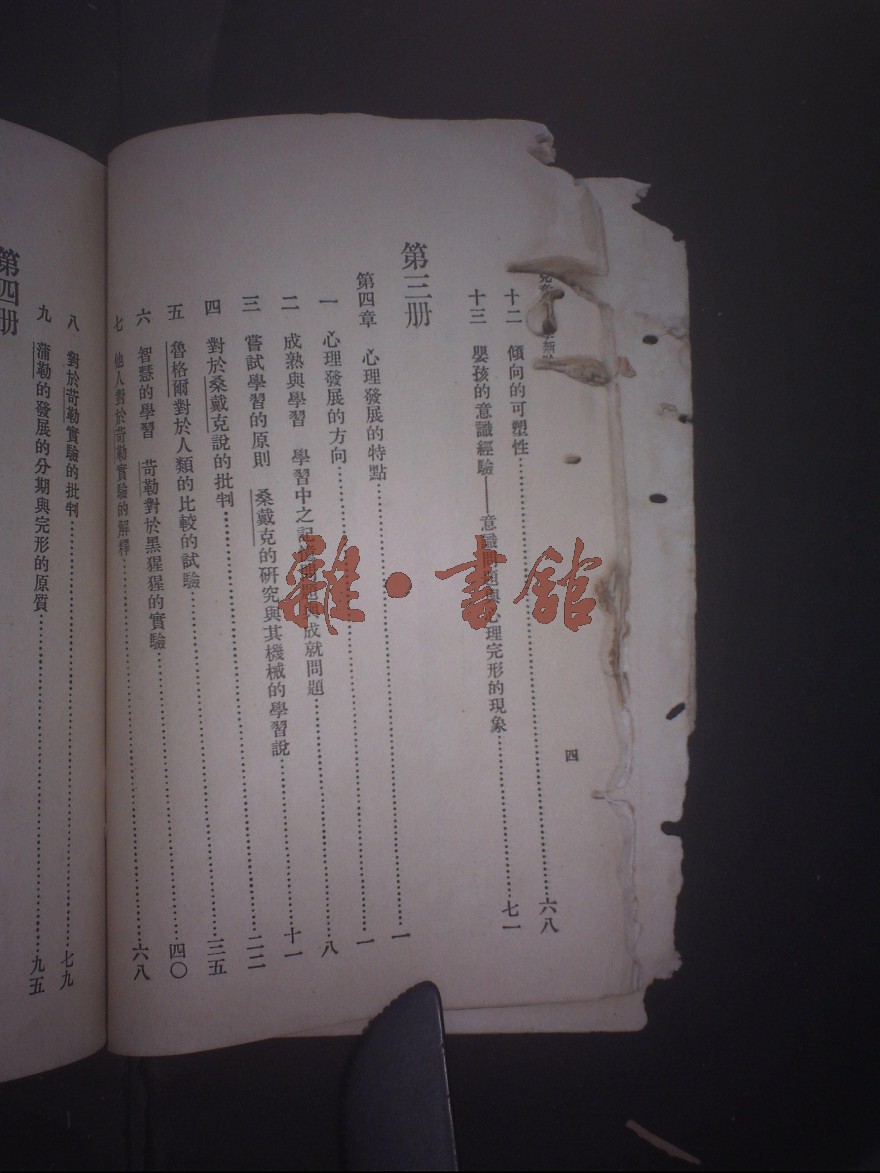 十二 傾向的可塑性……六八
十三 嬰孩的意識經驗——意識問題與心理完形的現象……七一
四
第三册
第四章 心理發展的特點……一
一 心理發展的方向……一
二 成熟與學習 學習中之記憶問題與成就問題……八
三 嘗試學習的原則 桑戴克的研究與其機械的學習說……十一
四 對於桑戴克說的批判……二二
五 魯格爾對於人類的比較的試驗……三五
六 智慧的學習 苛勒對於黑猩猩的實驗……四〇
七 他人對於苛勒實驗的解釋……六八
八 對於苛勒實驗的批判……七九
九 蒲勒的發展的分期與完形的原質……九五
第四册
雜·書館